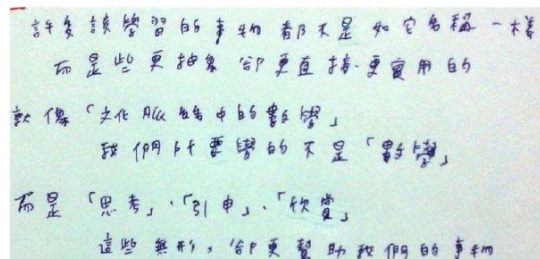 許多該學習的事物 都不是 如它名稱 一樣
而是些更抽象 卻更直接、更實用的
就像「文化脈絡中的數學」
我們所要學的不是「數學」
而是「思考」、「引申」、「欣賞」
這些無形，卻更幫助我們的事物